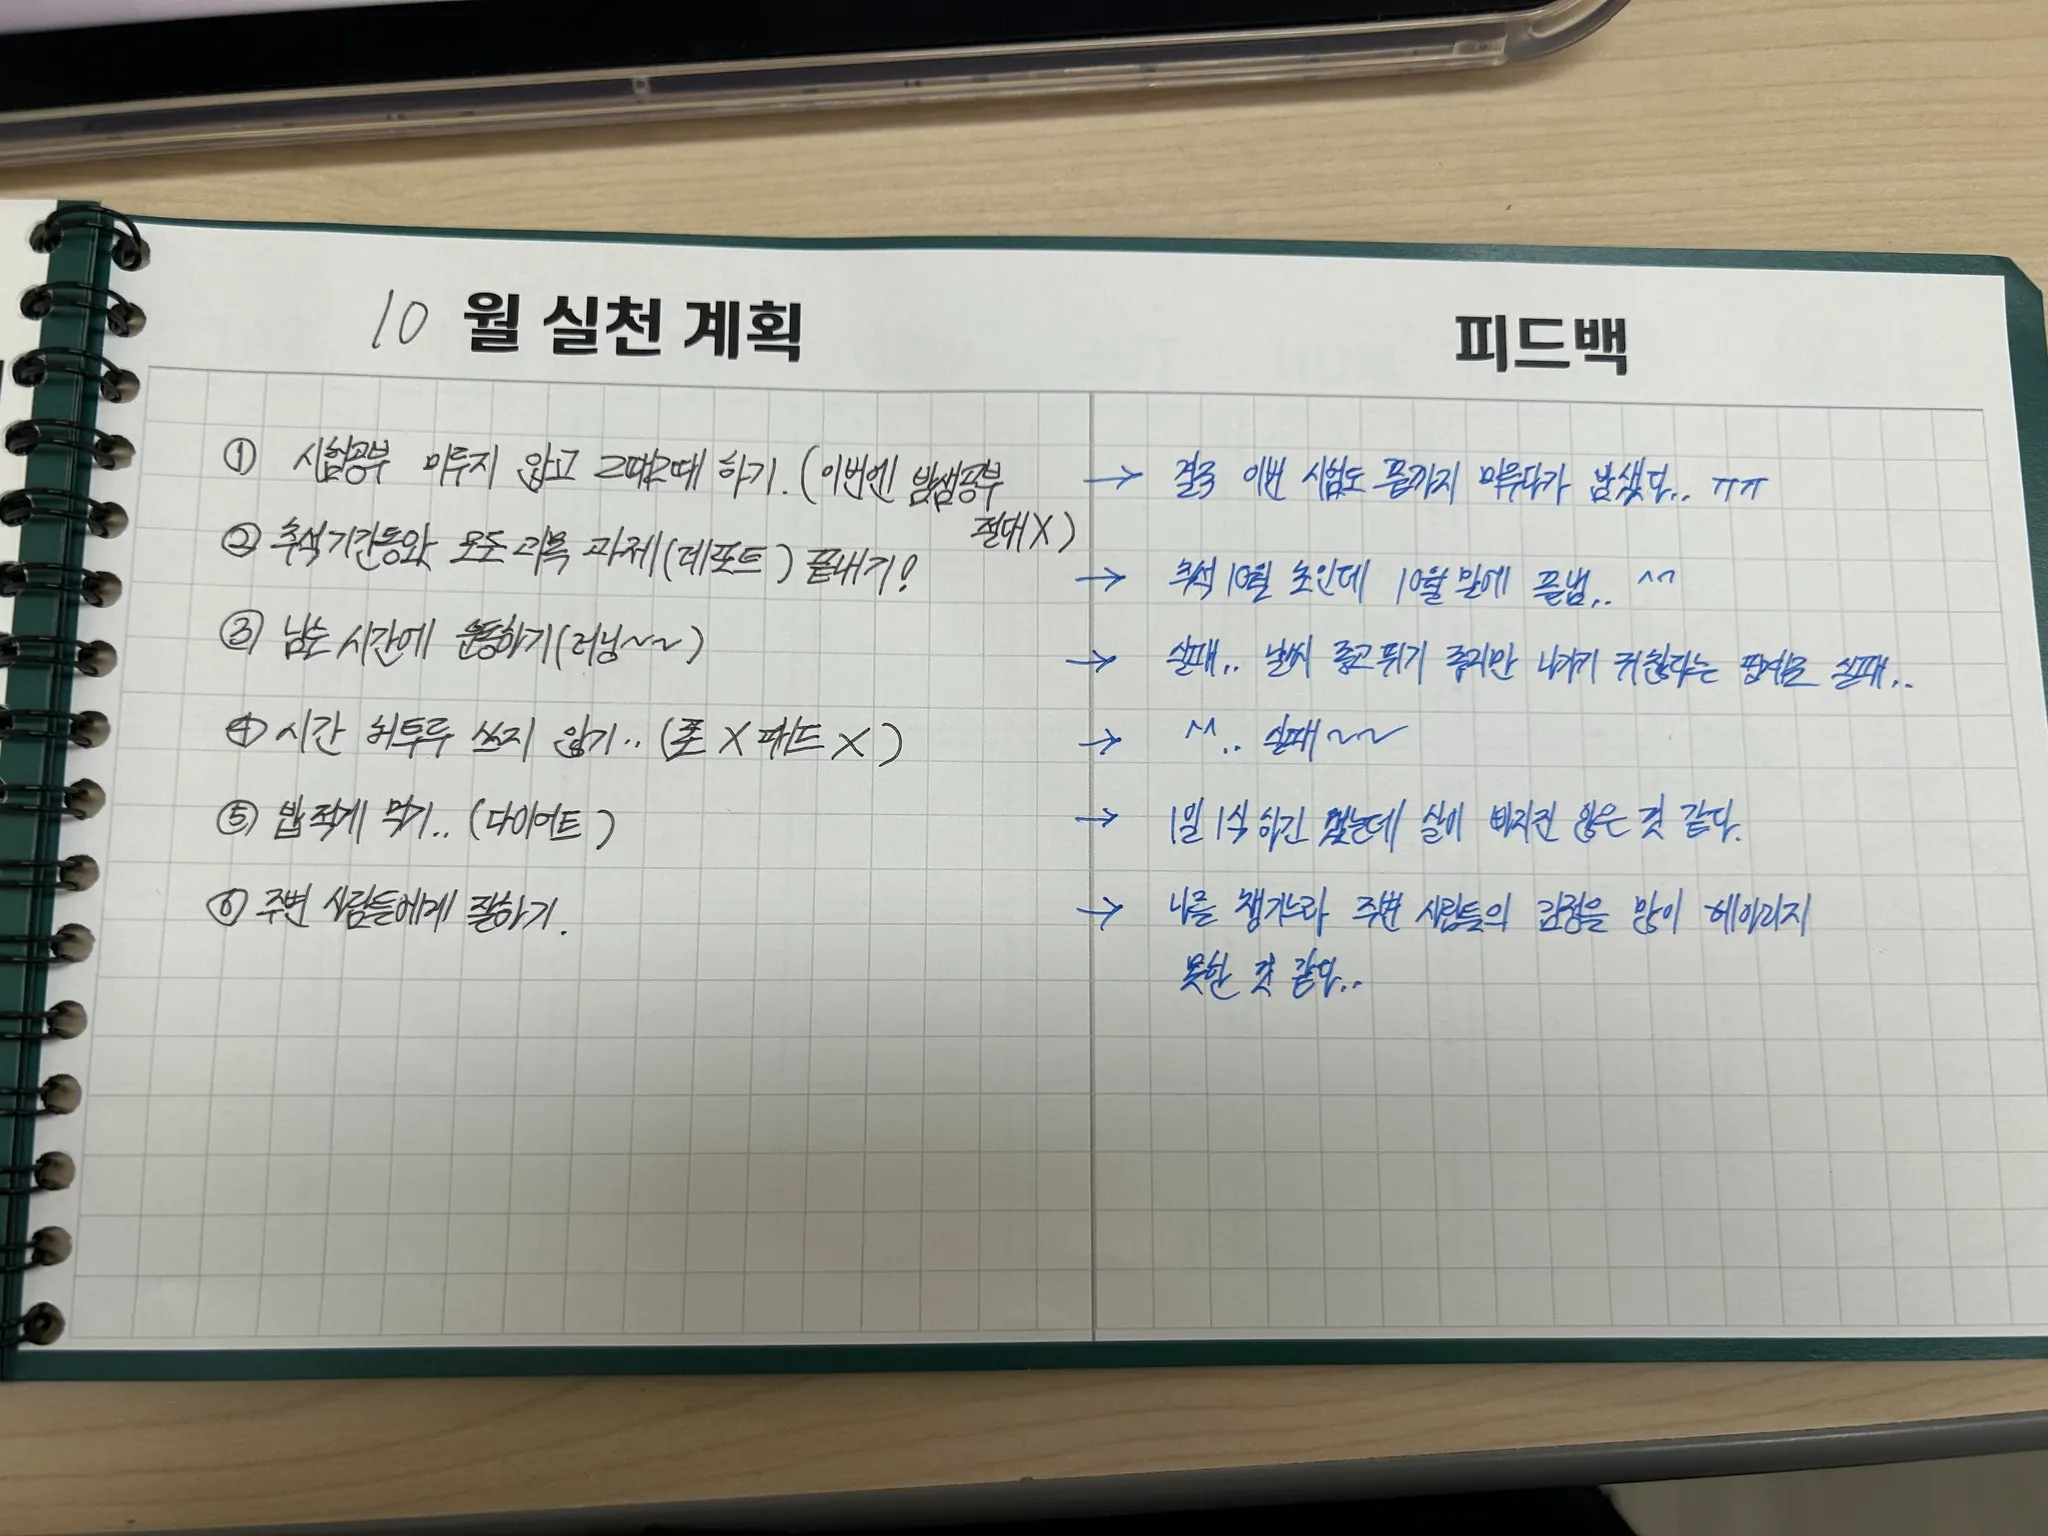 10 월 실천 계획
피드백
① 시험공부 미루지 않고 그때그때 하기. (이번엔 밤샘공부
절대X)
→ 결국 이번 시험도 끝까지 미루다가 밤샜다.. ㅠㅠ
② 추석기간동안 모든 과목 과제(레포트) 끝내기!
→ 추석 10월 초인데 10월 말에 끝냄.. ^^
③ 남는 시간에 운동하기(러닝~~)
→ 실패.. 날씨 좋고 뛰기 좋지만 나가기 귀찮다는 핑계로 실패..
④ 시간 허투루 쓰지 않기.. (폰 X 패드 X)
→ ^^.. 실패~~
⑤ 밥 적게 먹기.. (다이어트)
→ 1일 1식 하긴 했는데 살이 빠지진 않은 것 같다.
⑥ 주변 사람들에게 잘하기.
→ 나를 챙기느라 주변 사람들의 감정을 많이 헤아리지
못한 것 같다..